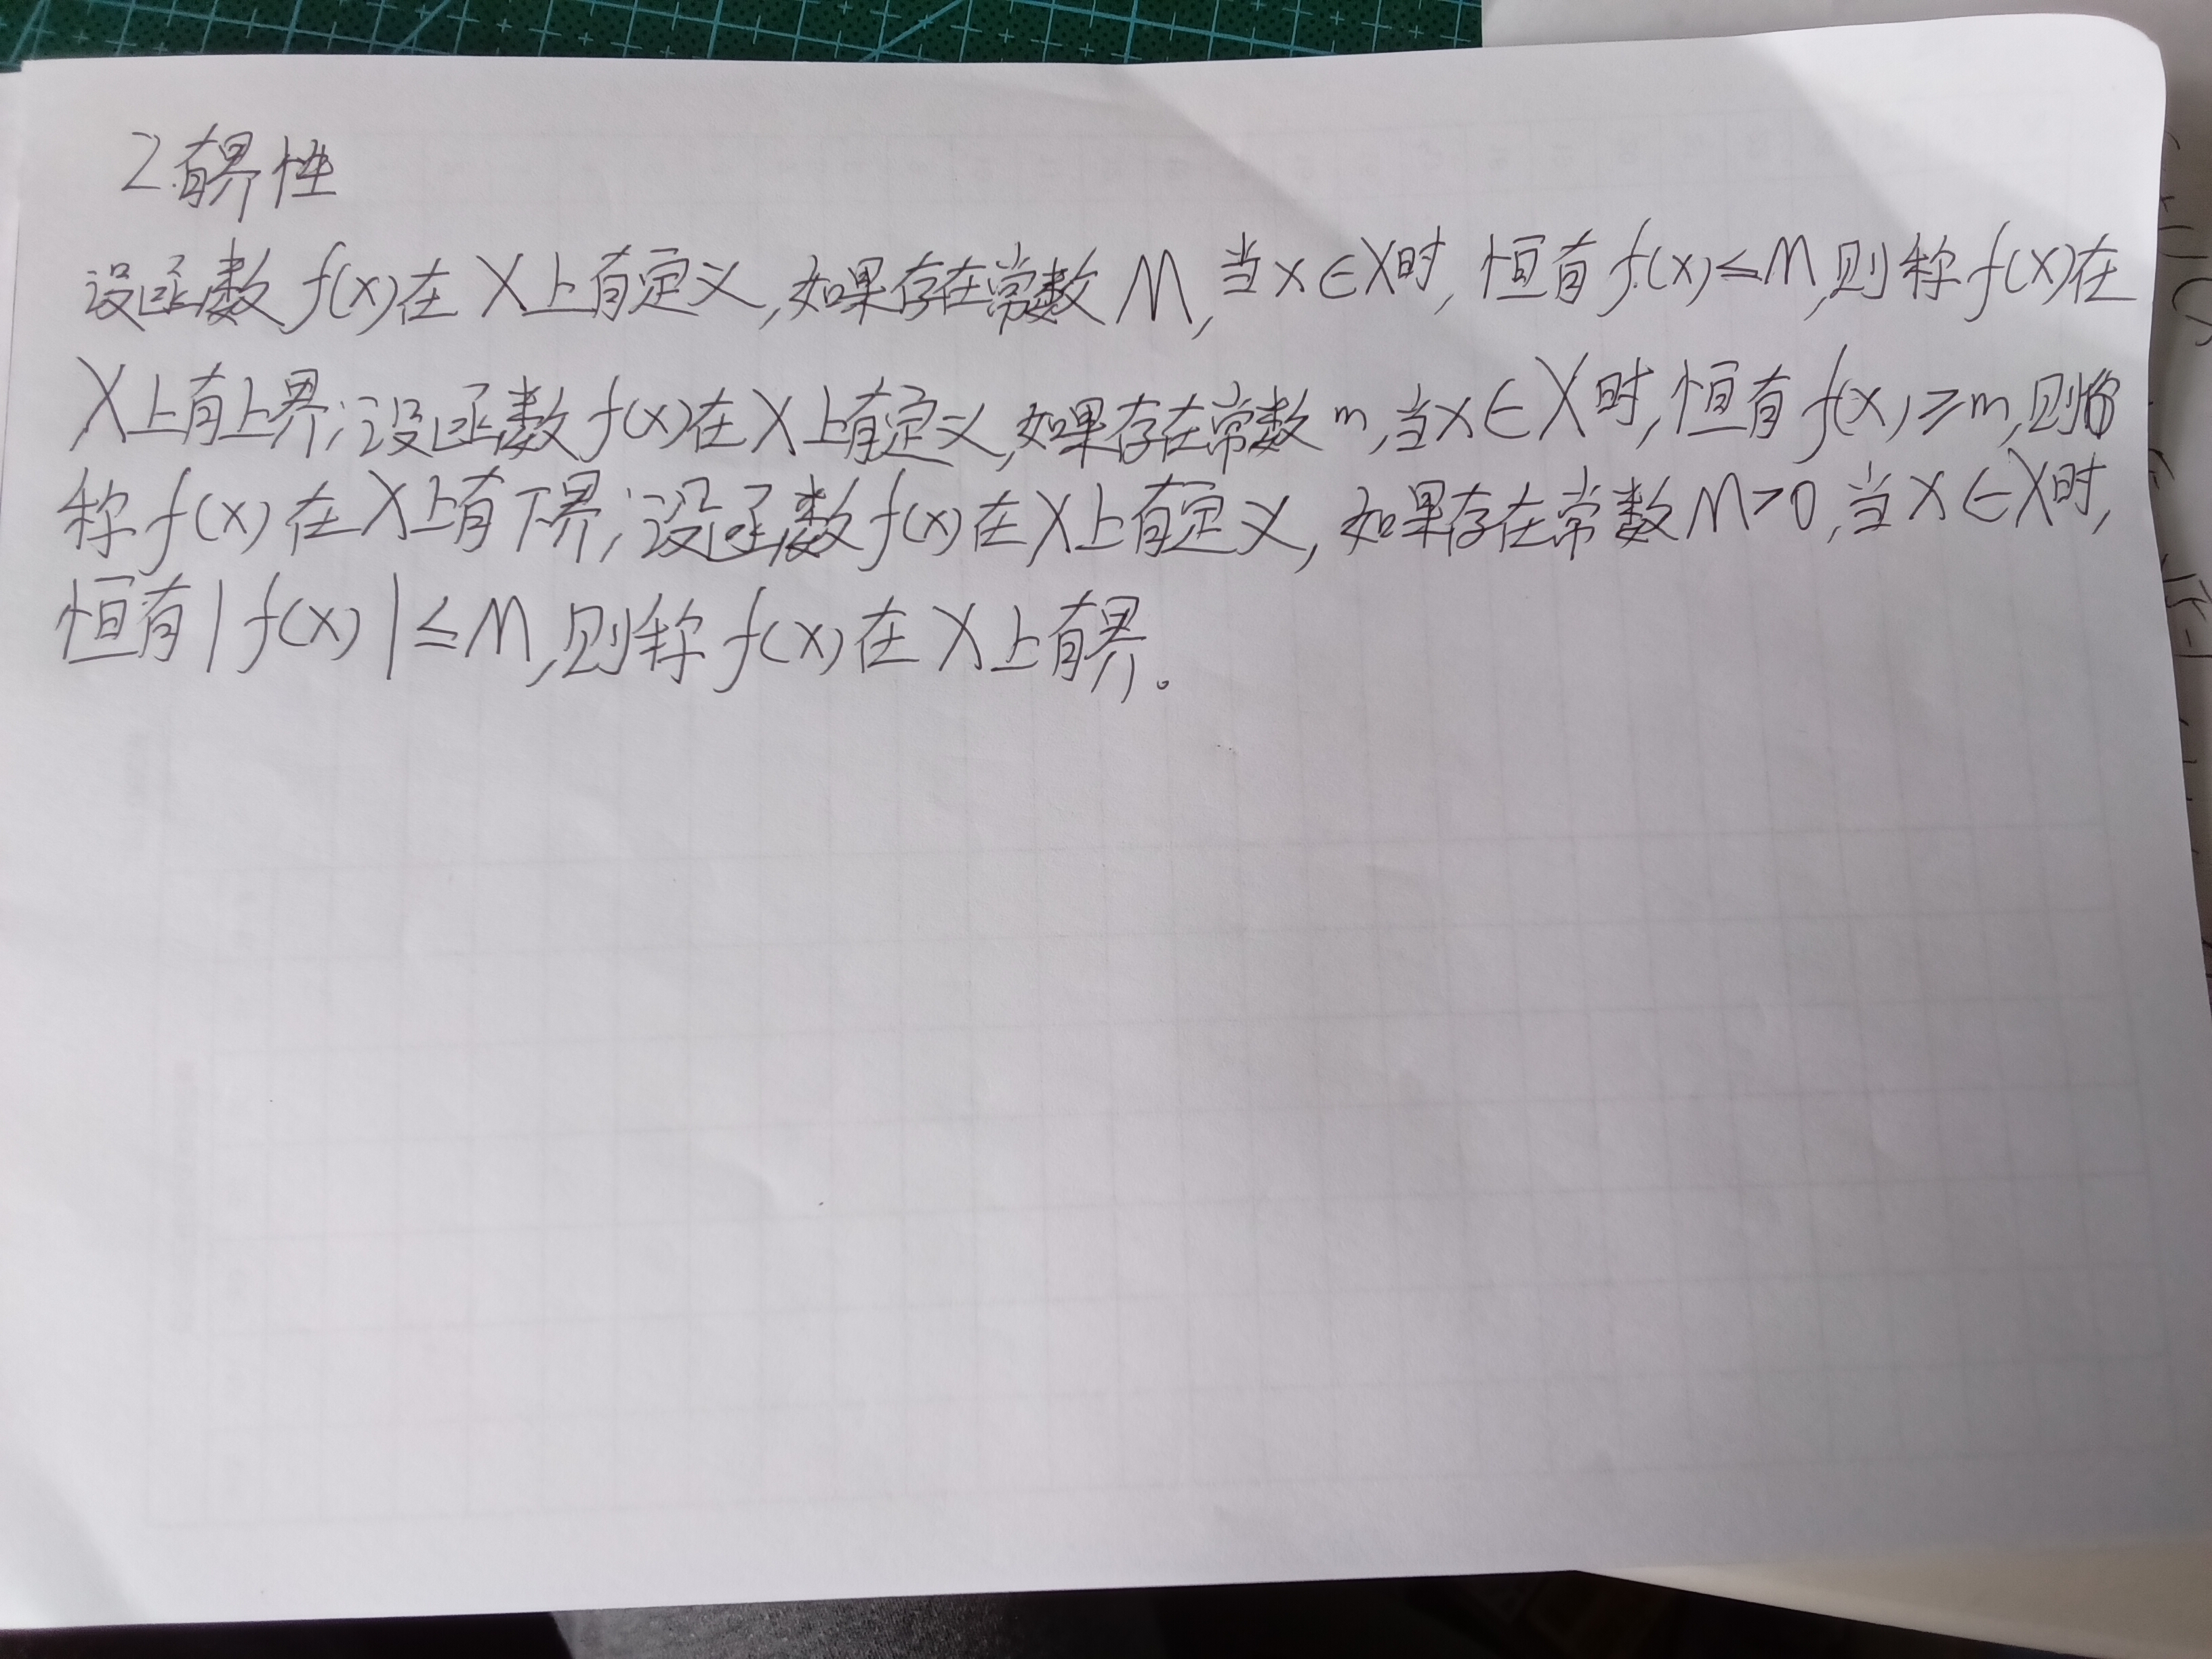 2.有界性
设函数f(x)在X上有定义,如果存在常数M,当x∈X时,恒有f(x)≤M,则称f(x)在
X上有上界;设函数f(x)在X上有定义,如果存在常数m,当x∈X时,恒有f(x)≥m,则
称f(x)在X上有下界;设函数f(x)在X上有定义,如果存在常数M>0,当x∈X时,
恒有|f(x)|≤M,则称f(x)在X上有界。